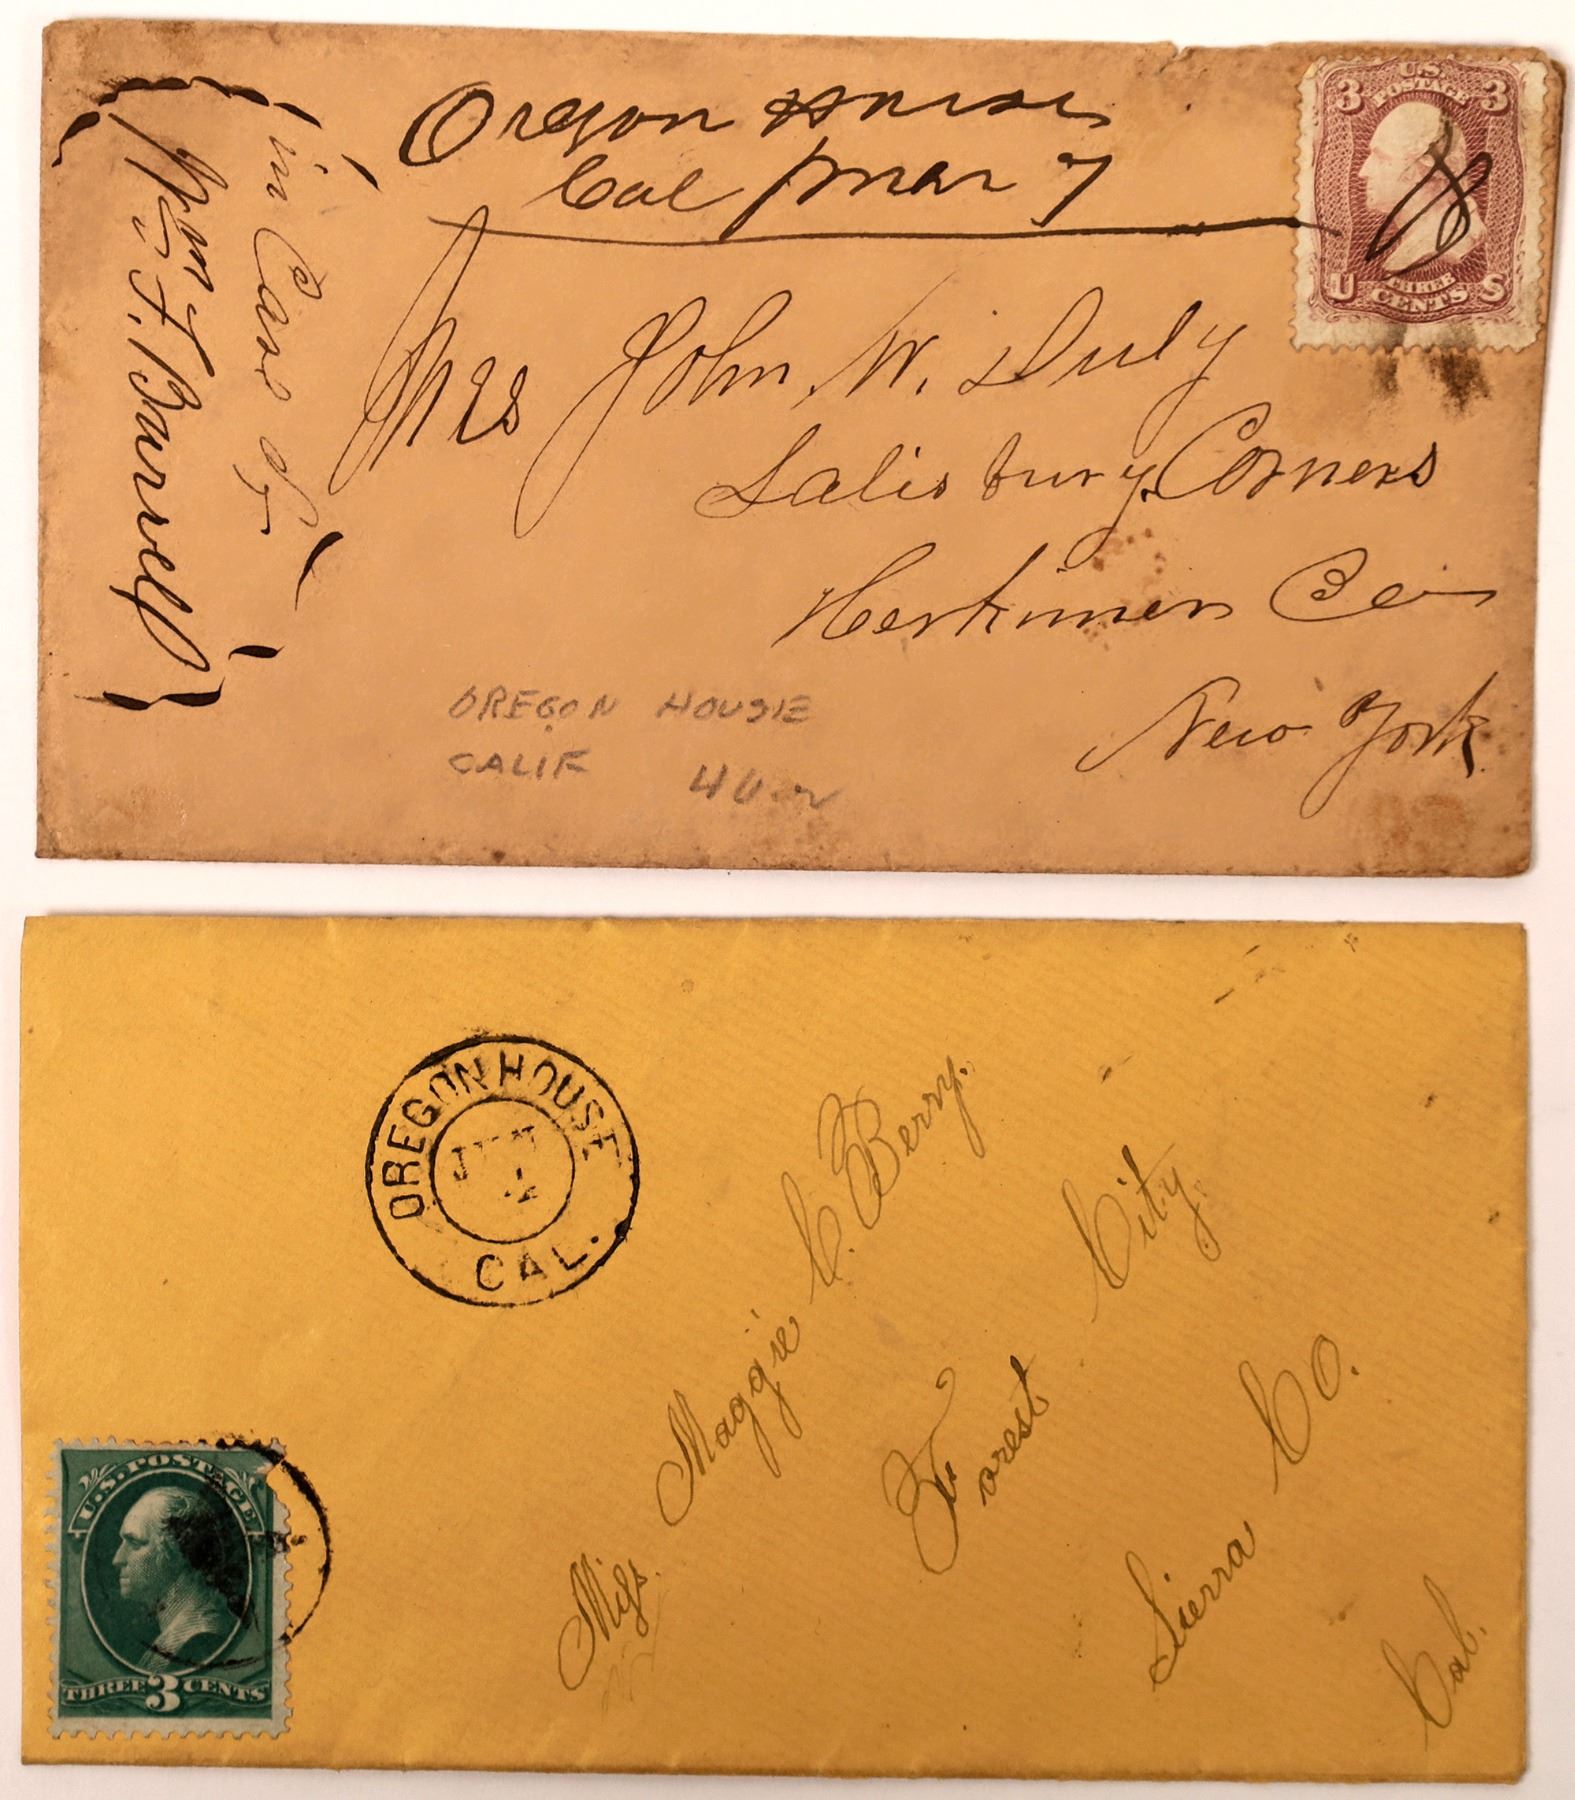 Oregon House
Cal Mar 7
{in Care of}
{Wm F. Barwell}
U.S.
3 POSTAGE 3
U THREE S
CENTS
Mrs John W. Duly
Salisbury Corners
Herkimer Co
New York
OREGON HOUSE
CALIF
OREGON HOUSE
CAL.
Miss. Maggie C. Berry.
Forest City
Sierra Co.
Cal.
U.S. POSTAGE
THREE 3 CENTS